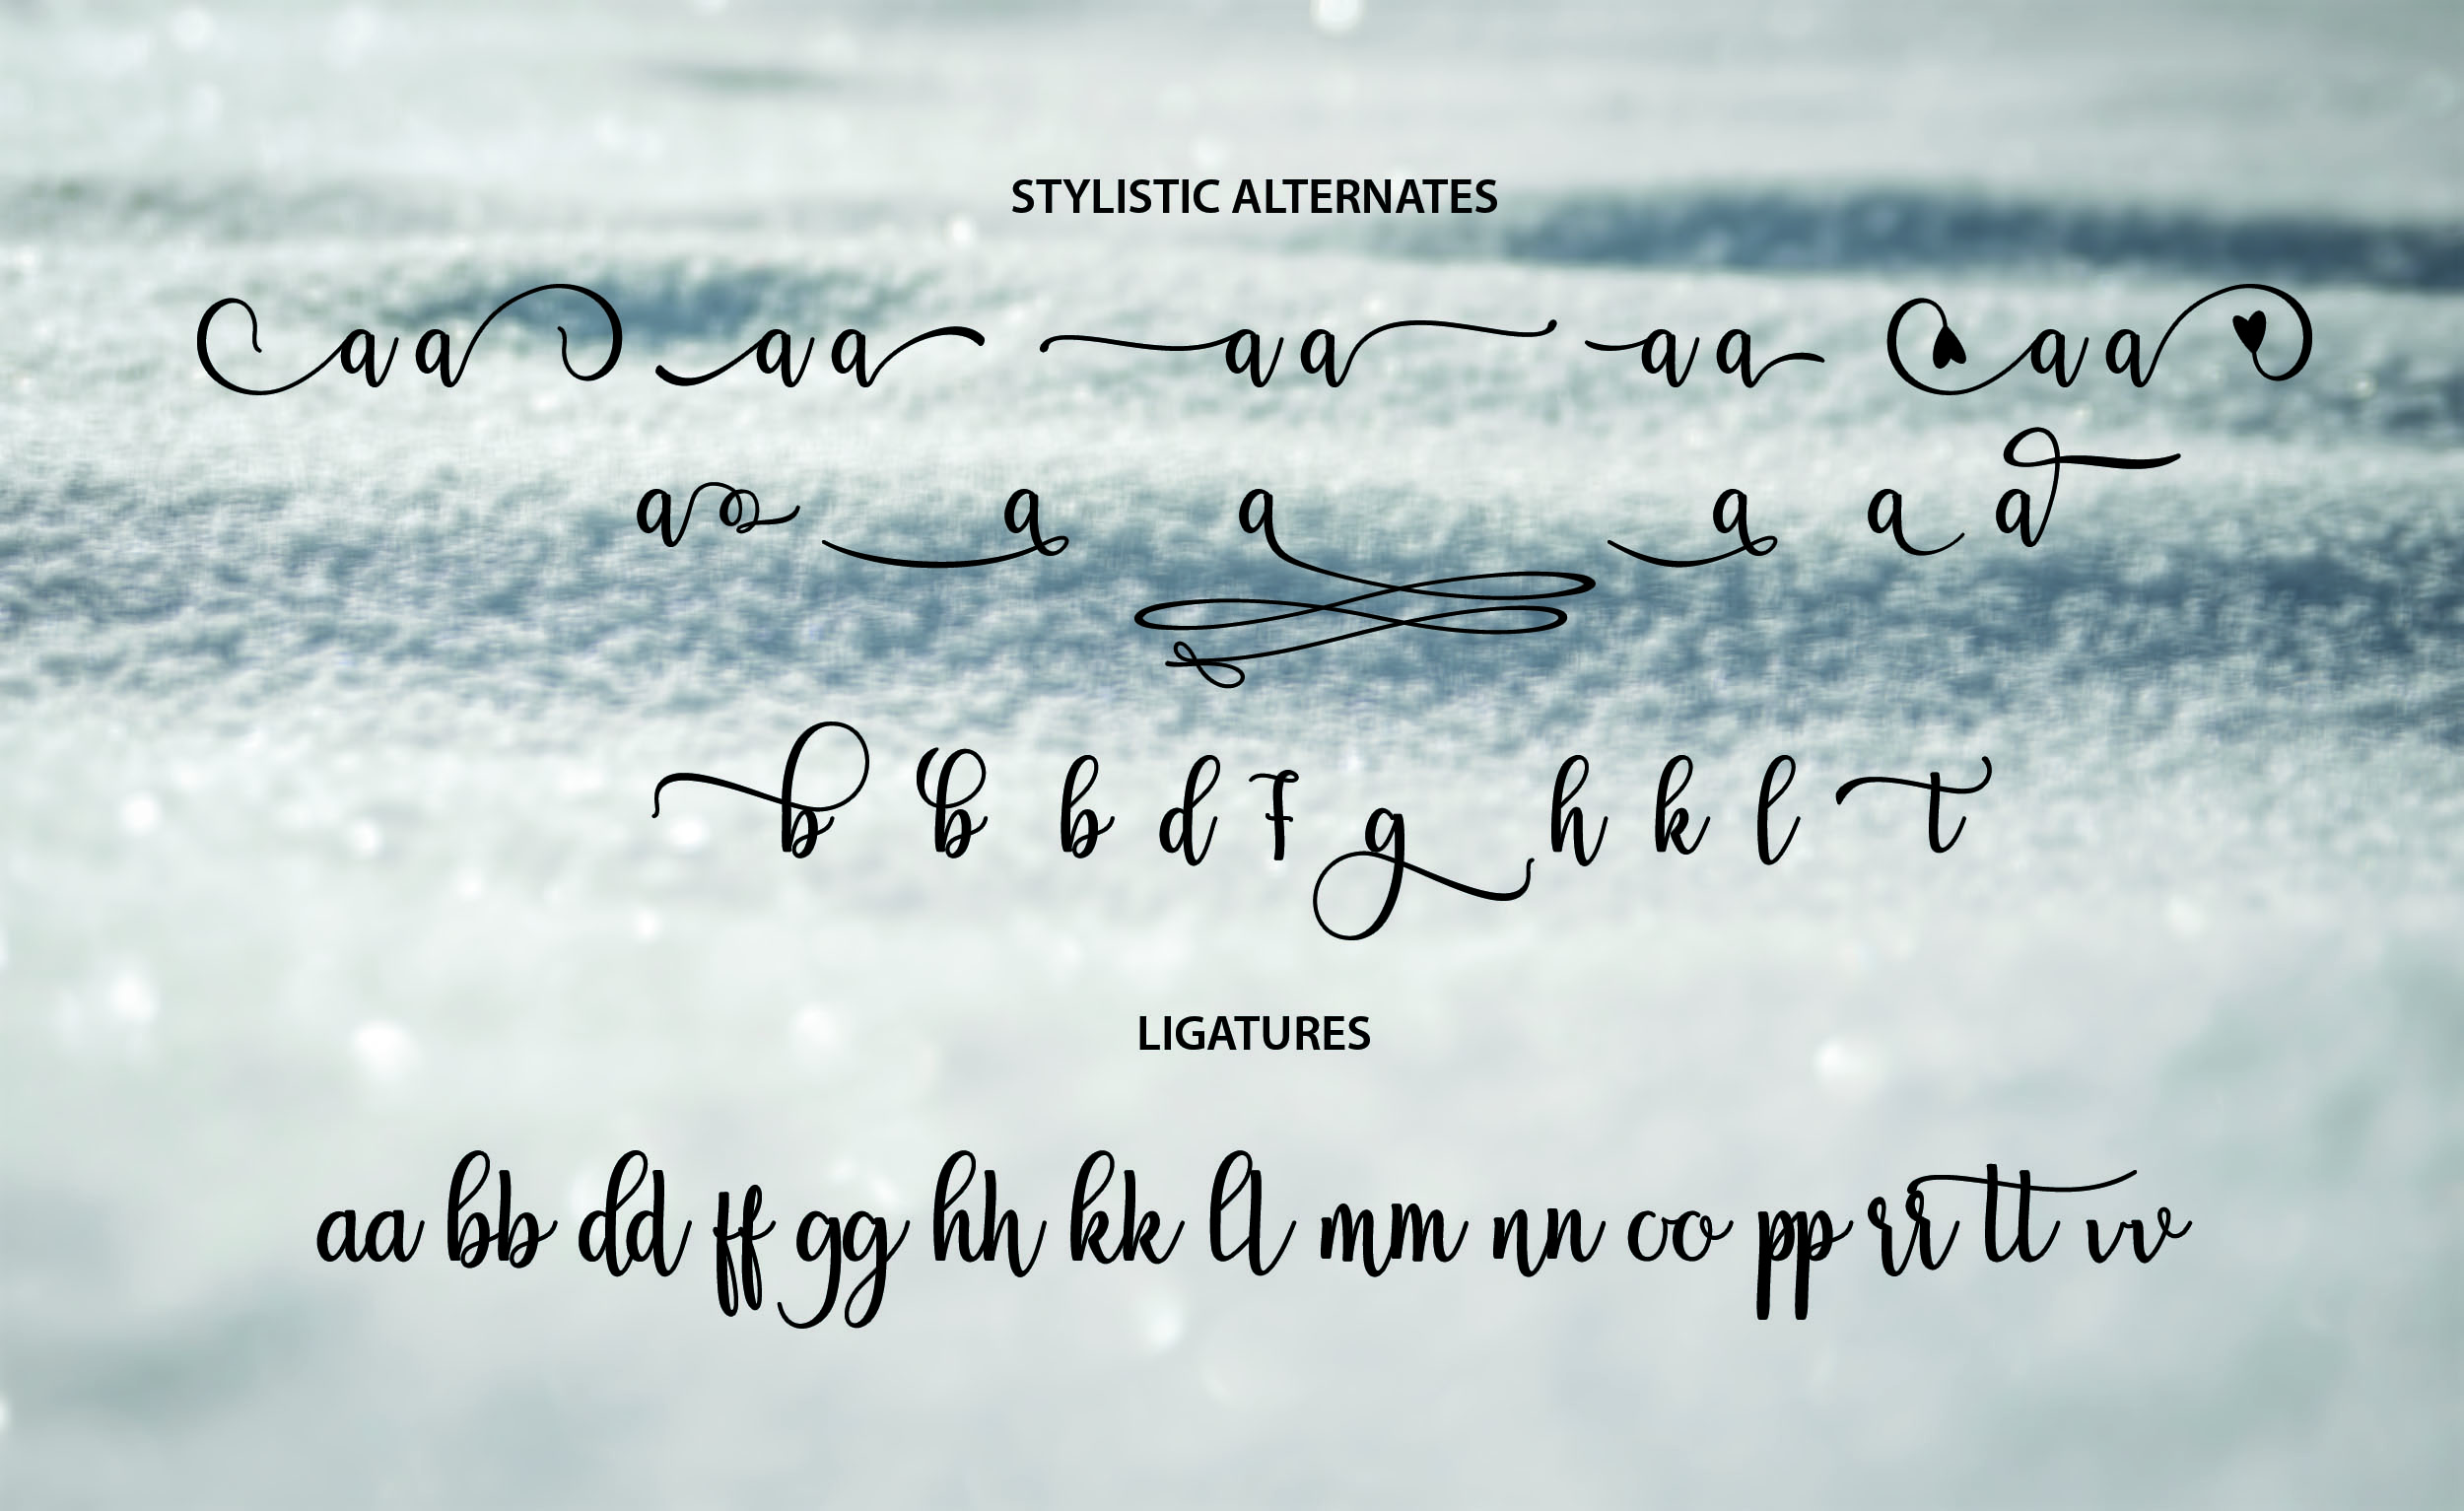 STYLISTIC ALTERNATES
aa aa aa aa aa
a a a a a a
b b b d f g h k l t
LIGATURES
aa bb dd ff gg hh kk ll mm nn oo pp rr tt vv